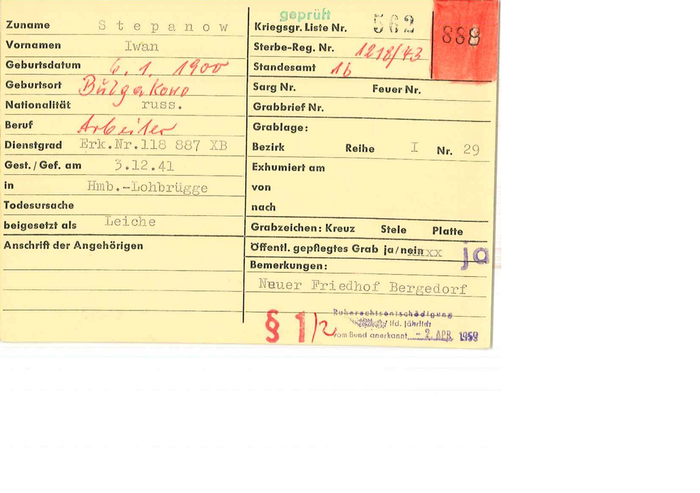 geprüft
Zuname S t e p a n o w
Vornamen Iwan
Geburtsdatum 6. 1. 1900
Geburtsort Bulgakowo
Nationalität russ.
Beruf Arbeiter
Dienstgrad Erk.Nr.118 887 XB
Gest./Gef. am 3.12.41
in Hmb.-Lohbrügge
Todesursache
beigesetzt als Leiche
Anschrift der Angehörigen
Kriegsgr. Liste Nr. 562
888
Sterbe-Reg. Nr. 1218/43
Standesamt 1b
Sarg Nr. Feuer Nr.
Grabbrief Nr.
Grablage:
Bezirk Reihe I Nr. 29
Exhumiert am
von
nach
Grabzeichen: Kreuz Stele Platte
Öffentl. gepflegtes Grab ja/nein xxxx ja
Bemerkungen:
Neuer Friedhof Bergedorf
§ 1/2
Ruherechtsentschädigung
lfd. jährlich
vom Bund anerkannt - 2. APR. 1959